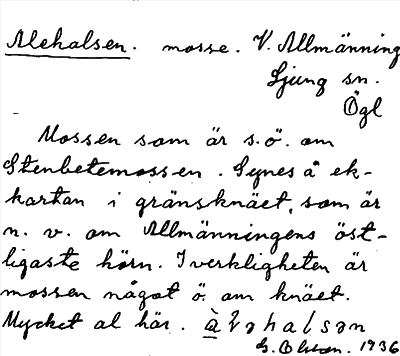 Alehalsen. mosse. V. Allmänning
Ljung sn.
Ögl
Mossen som är s.ö. om
Stenbetemossen. Synes å ek-
kartan i gränsknäet, som är
n. v. om Allmänningens öst-
ligaste hörn. I verkligheten är
mossen något ö. om knäet.
Mycket al här. àləhalsən
G. Olson. 1936